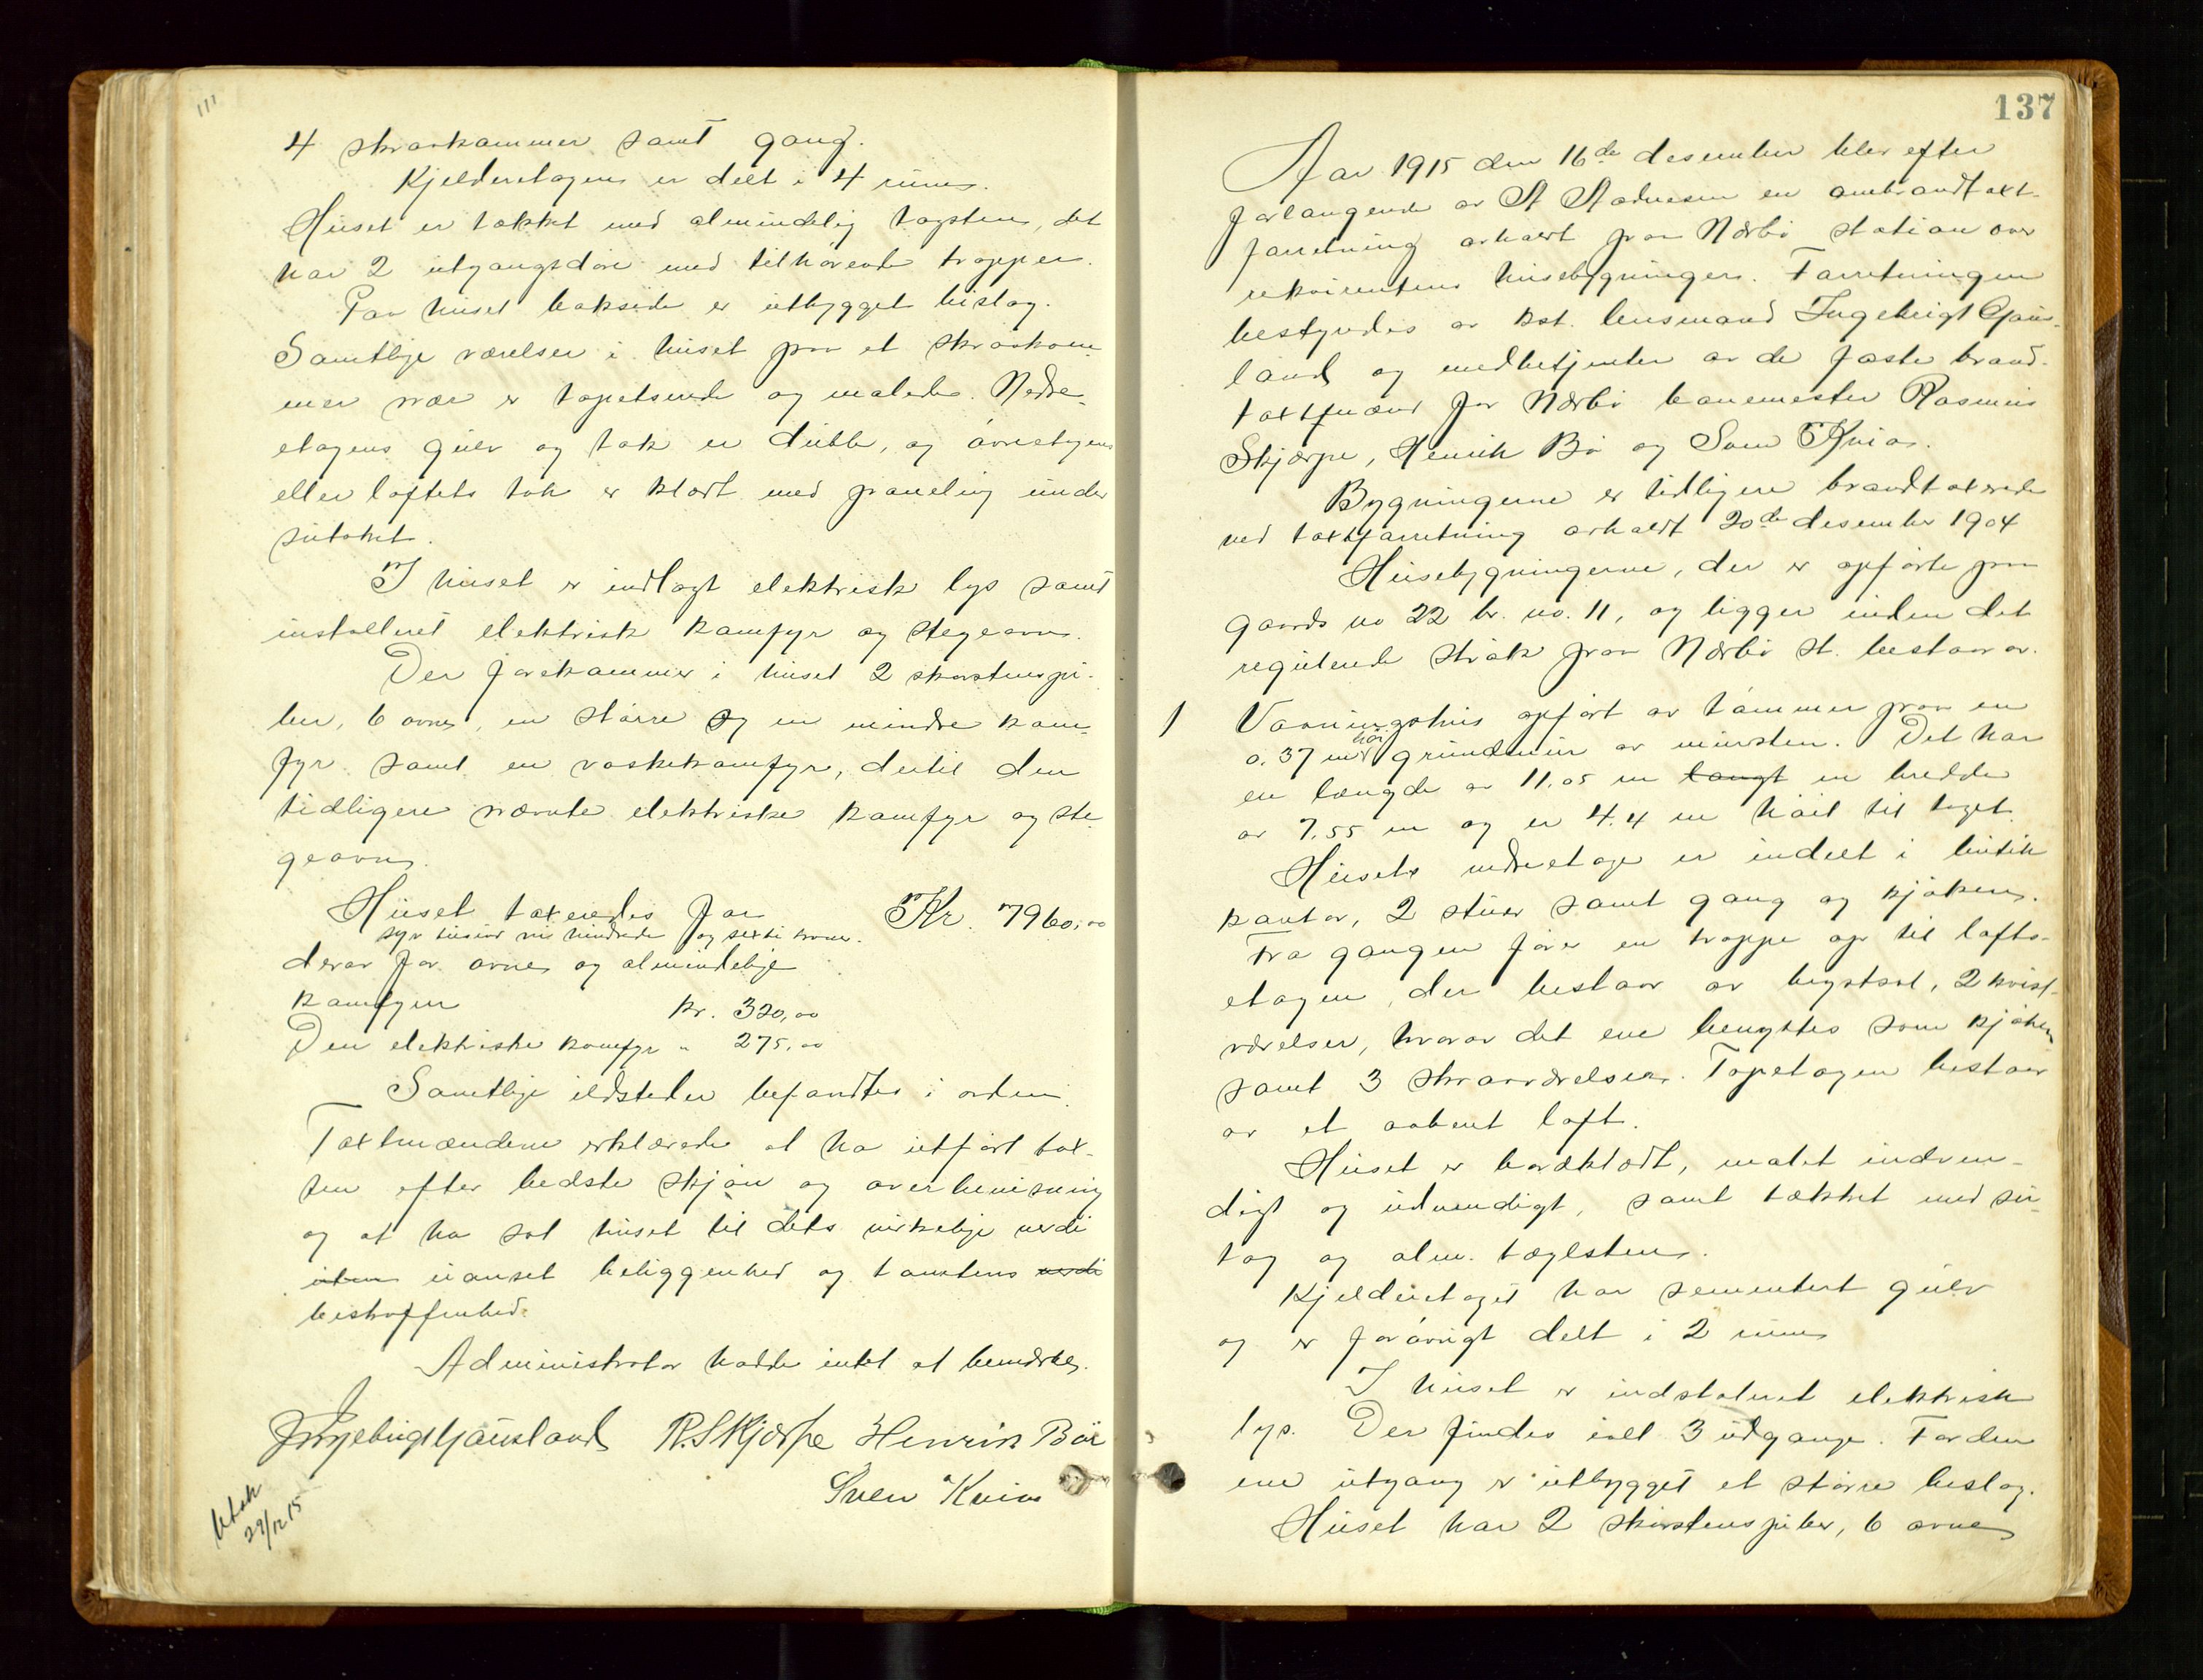 111
4 skraakammer samt gang.
Kjelderetagen er delt i 4 rum.
Huset er tækket med almindelig tagsten, det
har 2 utgangsdöre med tilhörende trapper.
Paa huset bakside er utbygget bislag.
Samtlige værelser i huset paa et skraakam-
mer nær er tapetserede og malede. Nedre-
etagens gulv og tak er dubble, og övreetagens
eller loftets tak er klædt med paneling under
sutaket.
I huset er indlagt elektrisk lys samt
installeret elektrisk kamfyr og stegeovn.
Der forekommer i huset 2 skorstenspi-
ber, 6 ovne, en större og en mindre kam-
fyr samt en vaskekamfyr, dertil den
tidligere nævnte elektriske kamfyr og ste-
geovn.
Huset taxeredes for Kr. 7960,00
syv tusind ni hundrede og sexti kroner.
derav for ovne og almindelige
kamfyrer kr. 320,00
Den elektriske komfyr " 275,00
Samtlige ildsteder befandtes i orden.
Taxtmændene erklærede at ha utfört tax-
ten efter bedste skjön og overbevisning
og at ha sat huset til dets virkelige verdi
uten uanset beliggenhed og tomtens verdi
beskaffenhed.
Administrator hadde intet at bemærke.
Ingebrigt Gausland R. Skjærpe Henrik Böe
Sven Kvia
Utsk
29/12 15
137
Aar 1915 den 16de desember blev efter
forlangende av A Aadnesen en ombrandtaxt-
forretning avholdt paa Nærbö station over
rekvirentens husebygninger. Forretningen
bestyredes av kst. lensmand Ingebrigt Gaus-
land og medbetjenter av de faste brand-
taxtmænd for Nærbö banemester Rasmus
Skjærpe, Henrik Bö og Sven Kvia.
Bygningerne er tidligere brandtaxerede
ved taxtforretning avholdt 20de desember 1904
Husebygningerne, der er opförte paa
gaards no 22 br. no. 11, og ligger inden det
regulerede strök paa Nærbö st. bestaar av.
1 Vaaningshus opfört av tömmer paa en
0.37 m höi grundmur av mursten. Det har
en længde av 11.05 m langt en bredde
av 7.55 m og er 4.4 m höit til taget
Husets nedreetage er inddelt i butik
kontor, 2 stuer samt gang og kjöken.
Fra gangen förer en trappe op til lofts-
etagen, der bestaar av bryst­sal, 2 kvist-
værelser, hvorav det ene benyttes som kjöken
samt 3 skraaværelser. Topetagen bestaar
av et aabent loft.
Huset er bordklædt, malet indven-
digt og udvendigt, samt tækket med su-
tag og alm. taglsten.
Kjelderetaget har sementert gulv
og er forövrigt delt i 2 rum
I huset er indstaleret elektrisk
lys. Der findes ialt 3 udgange. For den
ene utgang er utbygget et större bislag.
Huset har 2 skorstenspiber, 6 ovne